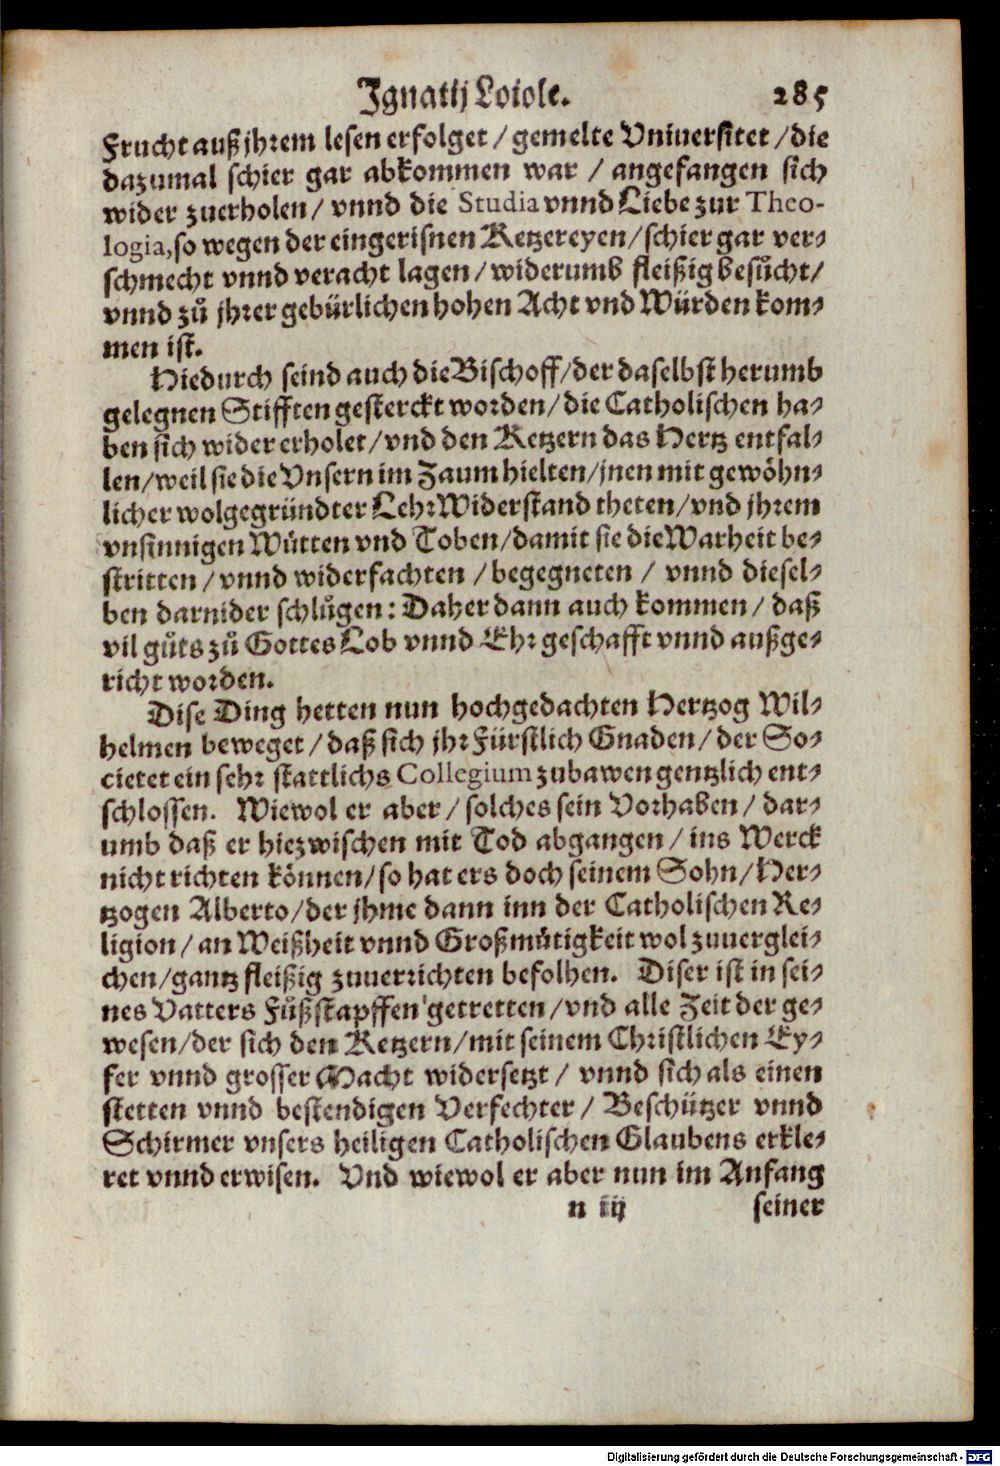 Ignatij Loiole. 285
Frucht auß jhrem lesen erfolget / gemelte Vniuersitet / die
dazumal schier gar abkommen war / angefangen sich
wider zuerholen / vnnd die Studia vnnd Liebe zur Theo-
logia, so wegen der eingerisnen Ketzereyen / schier gar ver-
schmecht vnnd veracht lagen / widerumb fleißig besůcht /
vnnd zů jhrer gebürlichen hohen Acht vnd Würden kom-
men ist.
Hiedurch seind auch die Bischoff / der daselbst herumb
gelegnen Stifften gesterckt worden / die Catholischen ha-
ben sich wider erholet / vnd den Ketzern das Hertz entfal-
len / weil sie die Vnsern im Zaum hielten / jnen mit gewöhn-
licher wolgegründter Lehr Widerstand theten / vnd jhrem
vnsinnigen Wütten vnd Toben / damit sie die Warheit be-
stritten / vnnd widerfachten / begegneten / vnnd diesel-
ben darnider schlůgen: Daher dann auch kommen / daß
vil gůts zů Gottes Lob vnnd Ehr geschafft vnnd außge-
richt worden.
Dise Ding hetten nun hochgedachten Hertzog Wil-
helmen beweget / daß sich jhr Fürstlich Gnaden / der So-
cietet ein sehr stattlichs Collegium zubawen gentzlich ent-
schlossen. Wiewol er aber / solches sein Vorhaben / dar-
umb daß er hiezwischen mit Tod abgangen / ins Werck
nicht richten können / so hat ers doch seinem Sohn / Her-
tzogen Alberto / der jhme dann inn der Catholischen Re-
ligion / an Weißheit vnnd Großmütigkeit wol zuuerglei-
chen / gantz fleißig zuuerrichten befolhen. Diser ist in sei-
nes Vatters Fůßstapffen getretten / vnd alle Zeit der ge-
wesen / der sich den Ketzern / mit seinem Christlichen Ey-
fer vnnd grosser Macht widersetzt / vnnd sich als einen
stetten vnnd bestendigen Verfechter / Beschützer vnnd
Schirmer vnsers heiligen Catholischen Glaubens erkle-
ret vnnd erwisen. Vnd wiewol er aber nun im Anfang
n iij seiner
Digitalisierung gefördert durch die Deutsche Forschungsgemeinschaft - DFG